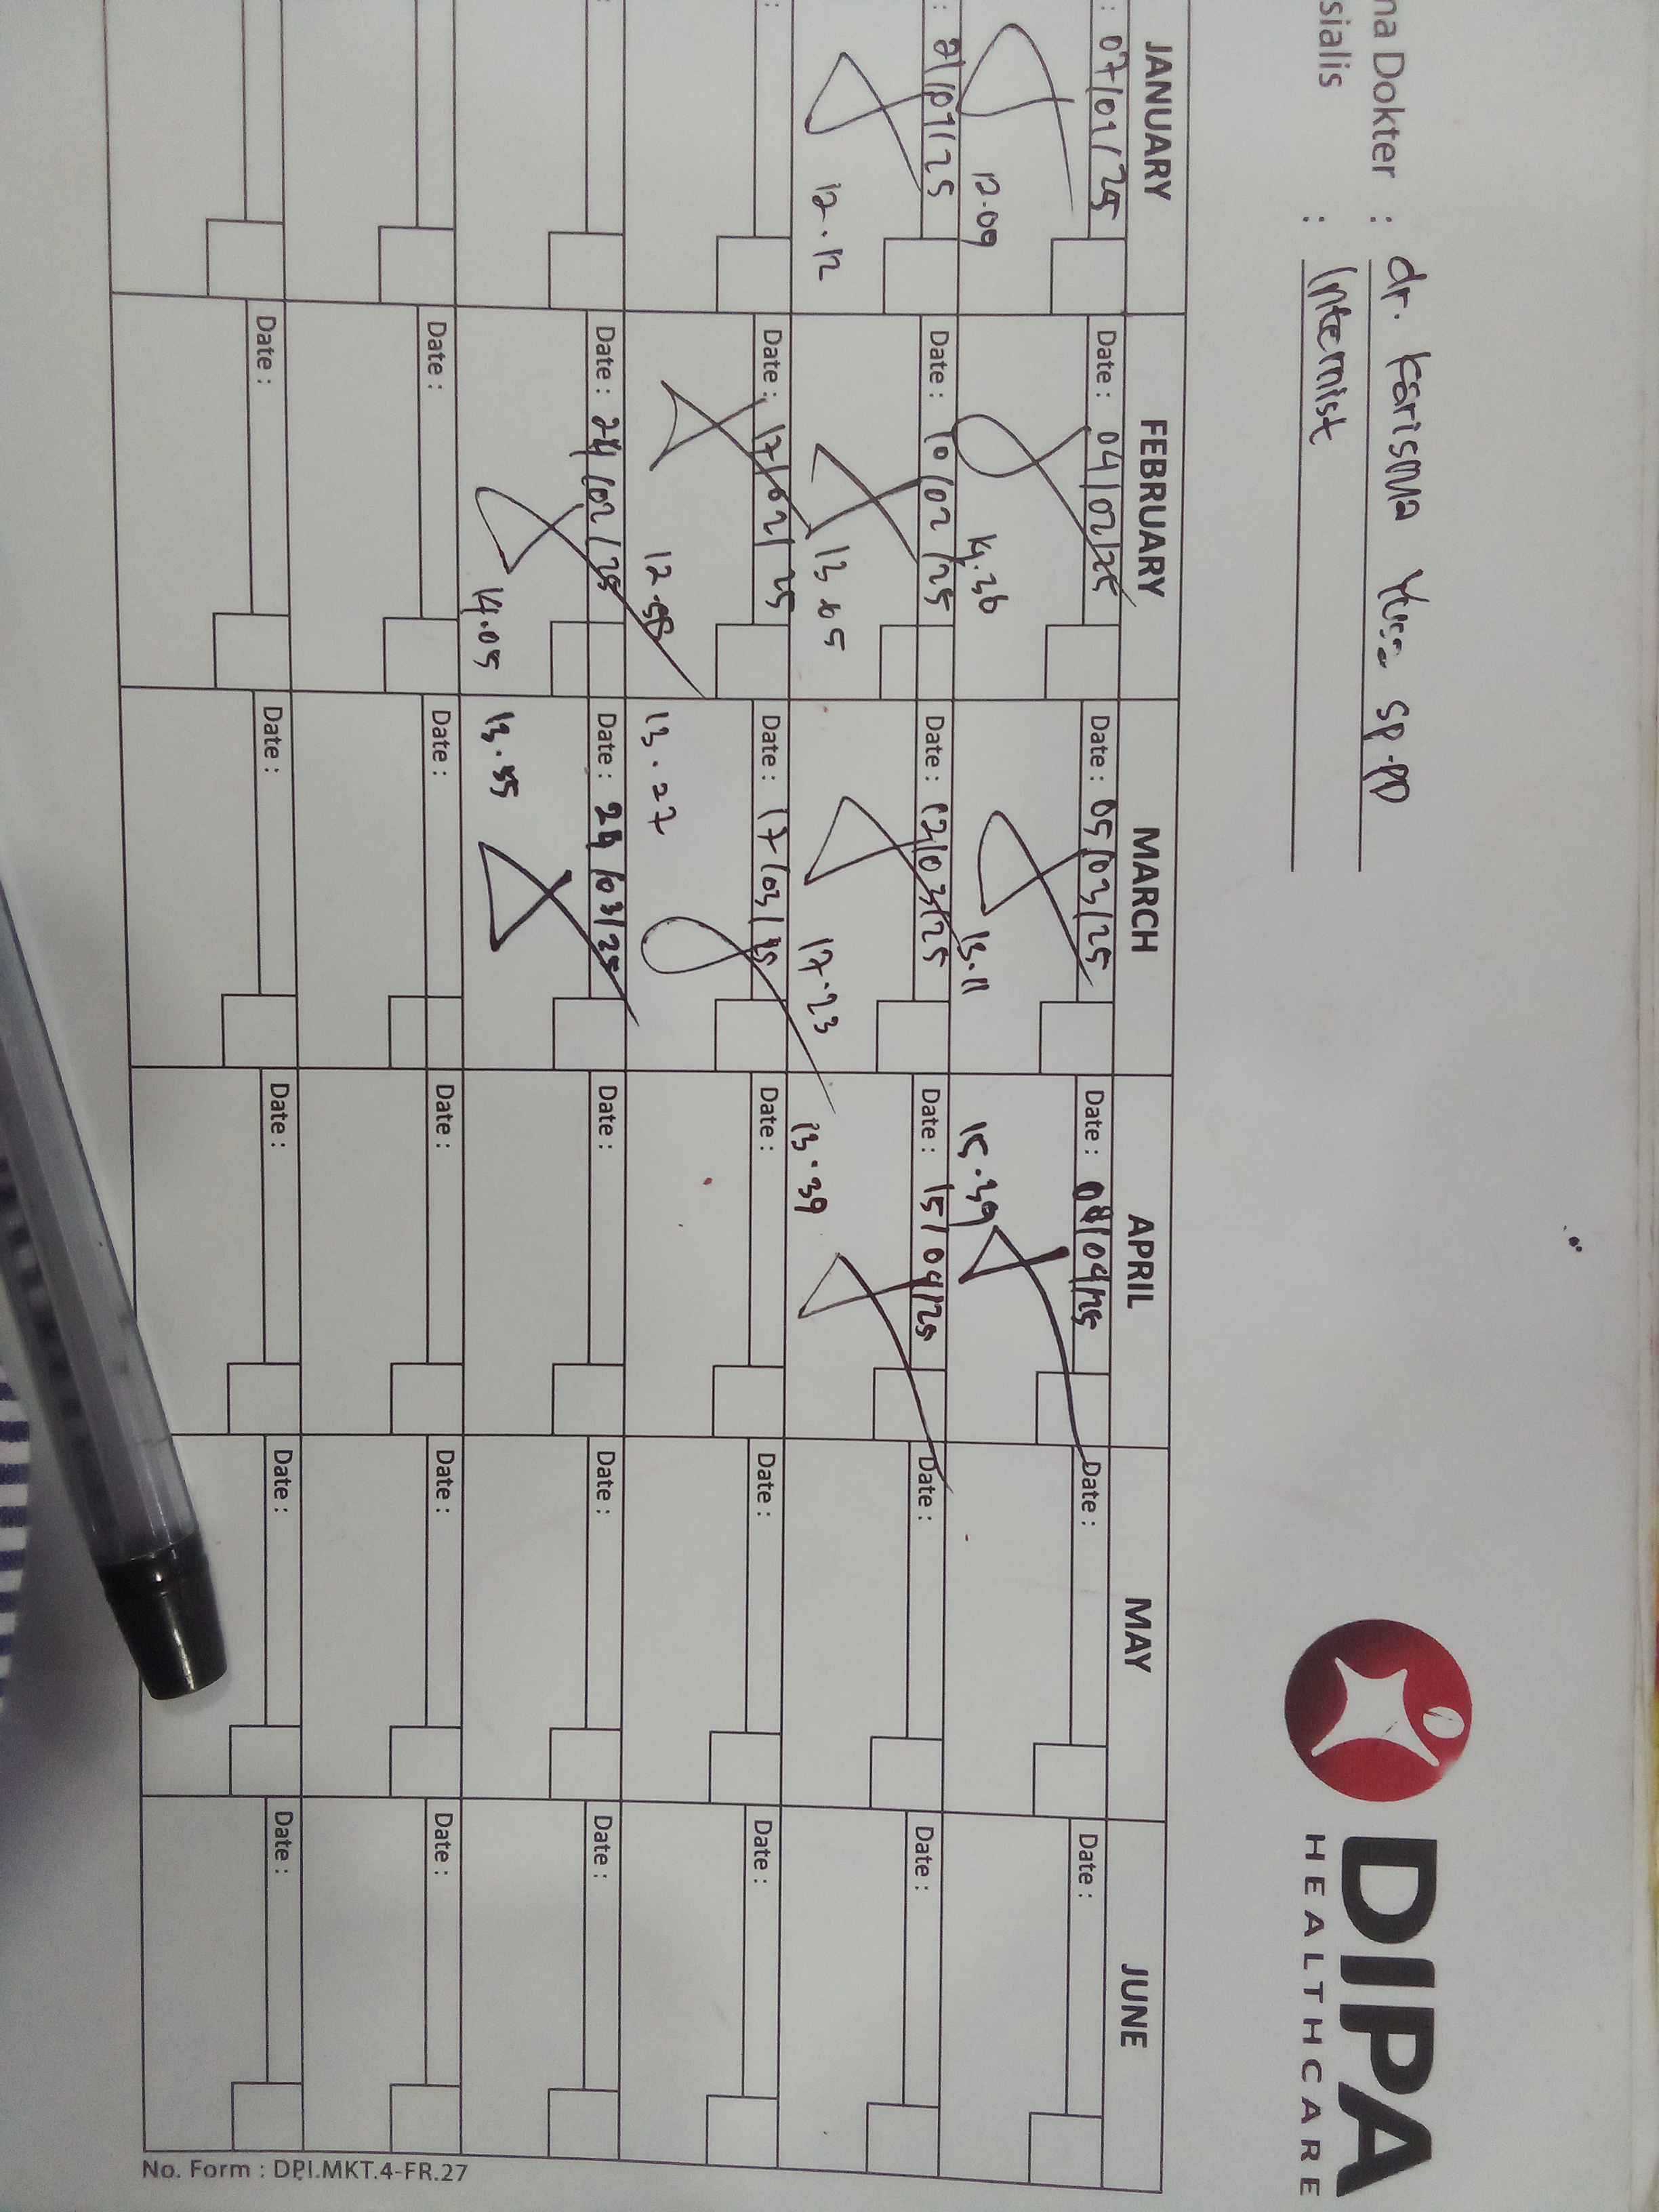 DIPA
HEALTHCARE
na Dokter : dr. Karisma Sp.PD
sialis : Internist
JANUARY FEBRUARY MARCH APRIL MAY JUNE
: 07/01/25 Date : 04/02/25 Date : 05/03/25 Date : 08/04/25 Date : Date :
12.09 14.36 13.11 15.39
: 21/01/25 Date : 10/02/25 Date : 12/03/25 Date : 15/04/25 Date : Date :
12.12 13.05 17.23 13.39
: Date : 17/02/25 Date : 17/03/25 Date : Date : Date :
13.27
: Date : 24/02/25 Date : 24/03/25 Date : Date : Date :
14.05 13.55
Date : Date : Date : Date : Date :
Date : Date : Date : Date : Date :
No. Form : DPI.MKT.4-FR.27